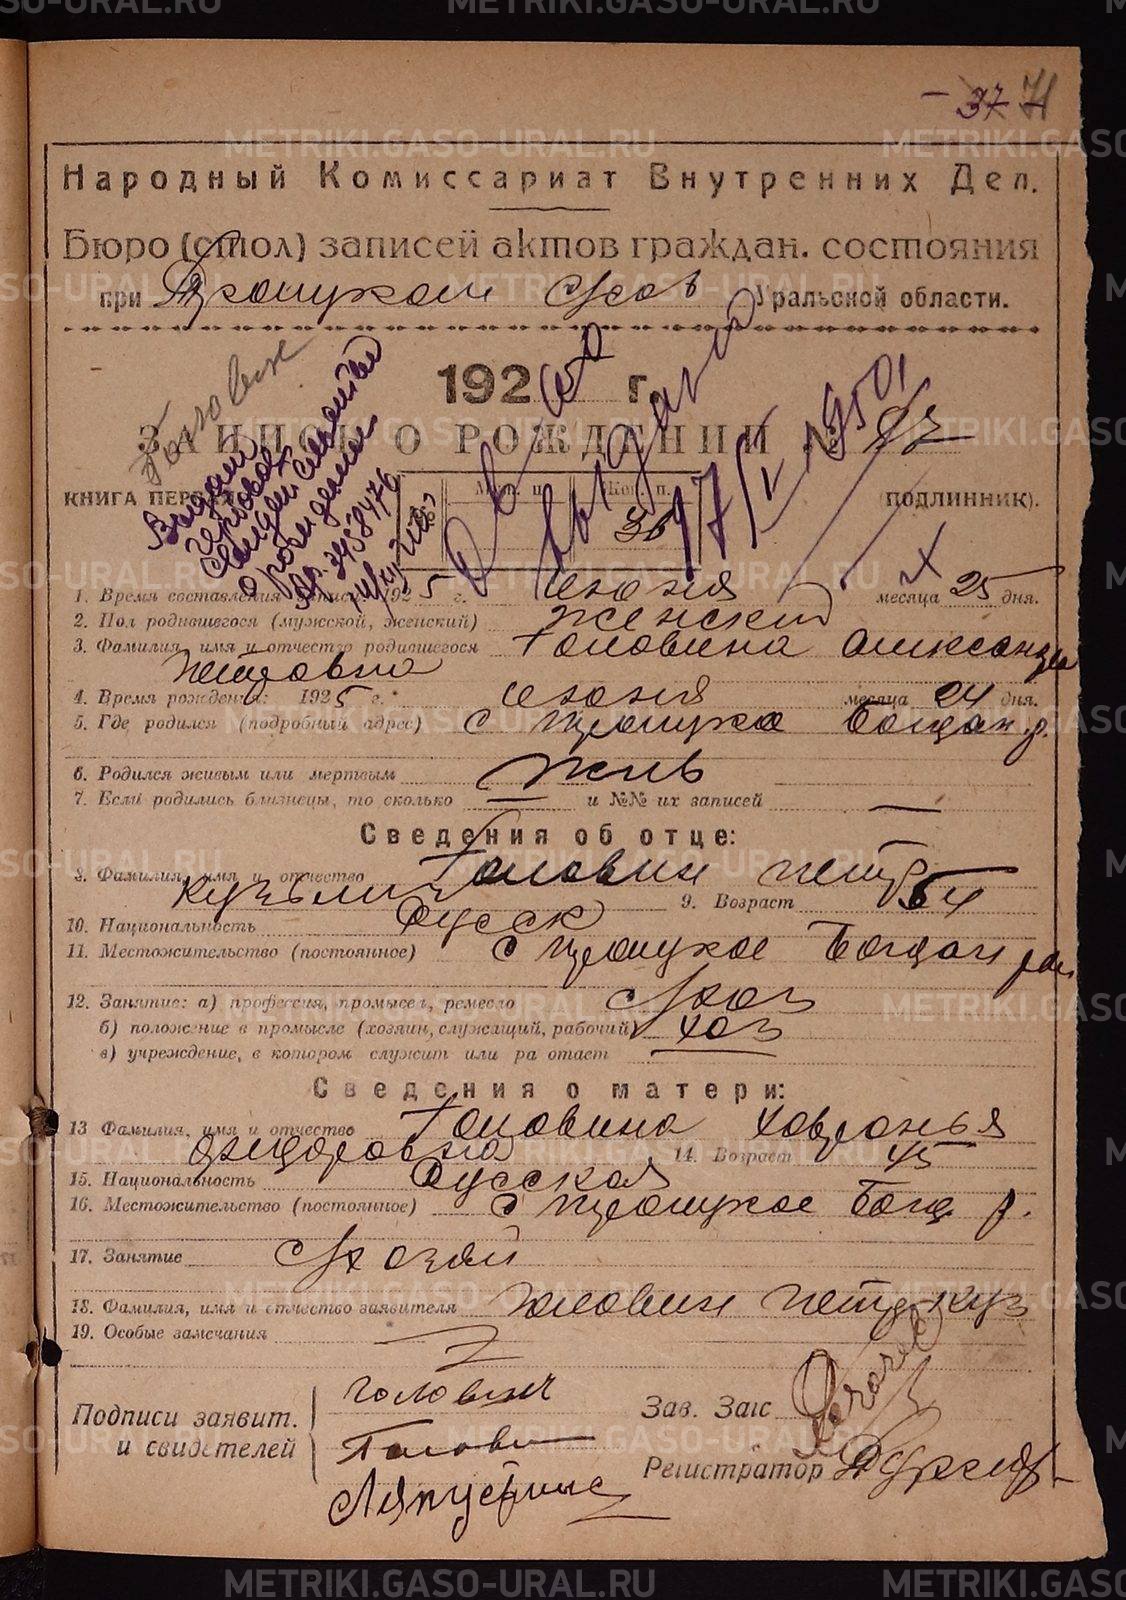 Народный Комиссариат Внутренних Дел.
Бюро (стол) записей актов граждан. состояния
при Троицком Уральской области.
Головин
1925 г.
ЗАПИСЬ О РОЖДЕНИИ №
КНИГА ПЕРВАЯ (ПОДЛИННИК).
17/V 1950
1. Время составления записи: 1925 г. июня месяца 25 дня.
2. Пол родившегося (мужской, женский) женский
3. Фамилия, имя и отчество родившегося Головина Александра
Петровна
4. Время рождения: 1925 г. июня месяца 24 дня.
5. Где родился (подробный адрес) с Троицкое Богдан. р.
6. Родился живым или мертвым жив
7. Если родились близнецы, то сколько — и №№ их записей —
Сведения об отце:
8. Фамилия, имя и отчество Головин Петр
Кузьмич 9. Возраст 54
10. Национальность Русск
11. Местожительство (постоянное) с Троицкое Богдан рай
12. Занятие: а) профессия, промысел, ремесло с/хоз
б) положение в промысле (хозяин, служащий, рабочий) хоз
в) учреждение, в котором служит или работает
Сведения о матери:
13 Фамилия, имя и отчество Головина Хавронья
Федоровна 14. Возраст 45
15. Национальность Русская
16. Местожительство (постоянное) с Троицкое Богд р.
17. Занятие
18. Фамилия, имя и отчество заявителя Головин Петр Куз
19. Особые замечания
Подписи заявит. и свидетелей
Головинъ
Голови
Зав. Загс
Регистратор
METRIKI.GASO-URAL.RU